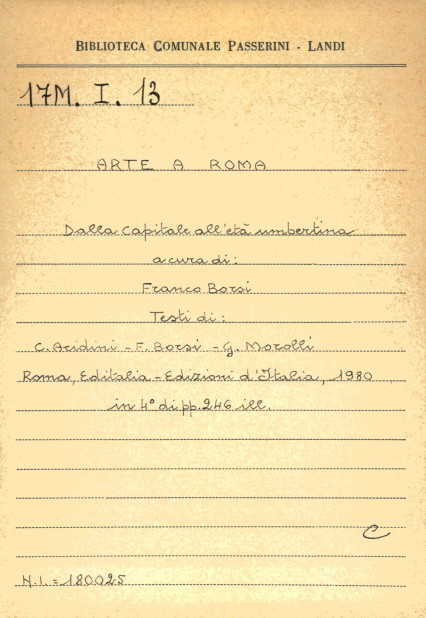 BIBLIOTECA COMUNALE PASSERINI - LANDI
17M. I. 13
ARTE A ROMA
Dalla Capitale all'età umbertina
a cura di:
Franco Borsi
Testi di:
C. Acidini - F. Borsi - G. Morolli
Roma, Editalia - Edizioni d'Italia, 1980
in 4° di pp. 246 ill.
C
N.I. = 180025